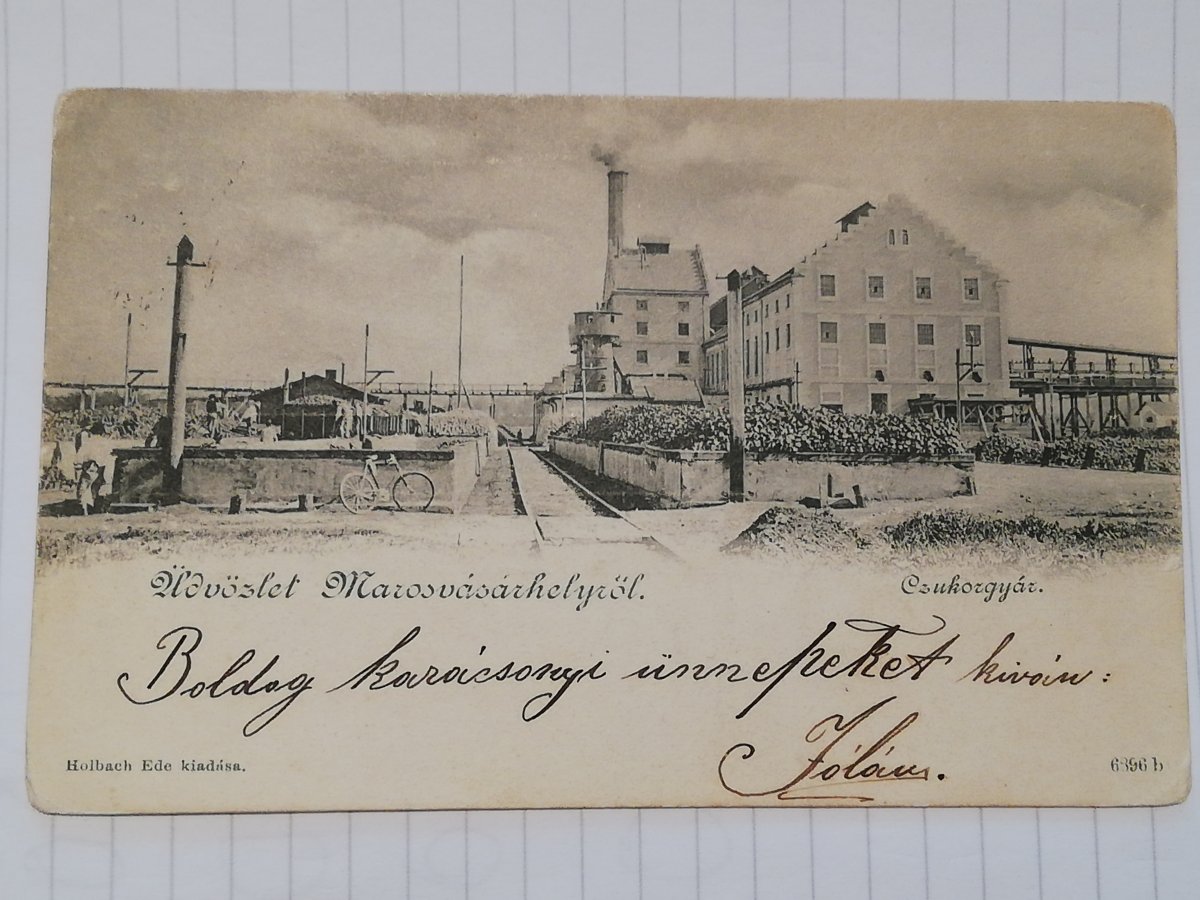 Üdvözlet Marosvásárhelyről. Czukorgyár.
Boldog karácsonyi ünnepeket kiván:
Jólán.
Holbach Ede kiadása. 6896 b